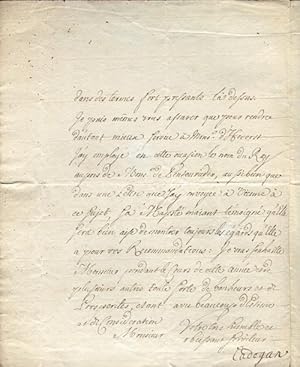 dans des termes fort pressants là dessus
je puis mieux vous assurer que pour rendre
d'autant mieux
j'ay employé en cette occasion le nom du Roy
auprès de Mons. de aussi bien que
dans une lettre que j'ay envoyée à Vienne à
ce sujet, Sa Majesté m'aiant temoigné qu'elle
sera bien aise de montrer toujours les egards qu'elle
a pour vos Recommandations: Je vous souhaitte
Monsieur pendant le cours de cette année & de
plusieurs autres toute sorte de bonheurs et de
Prosperités, etant avec beaucoup d'Estime
et de Consideration
Monsieur
Votre tres humble et
obeissant serviteur
Cadogan